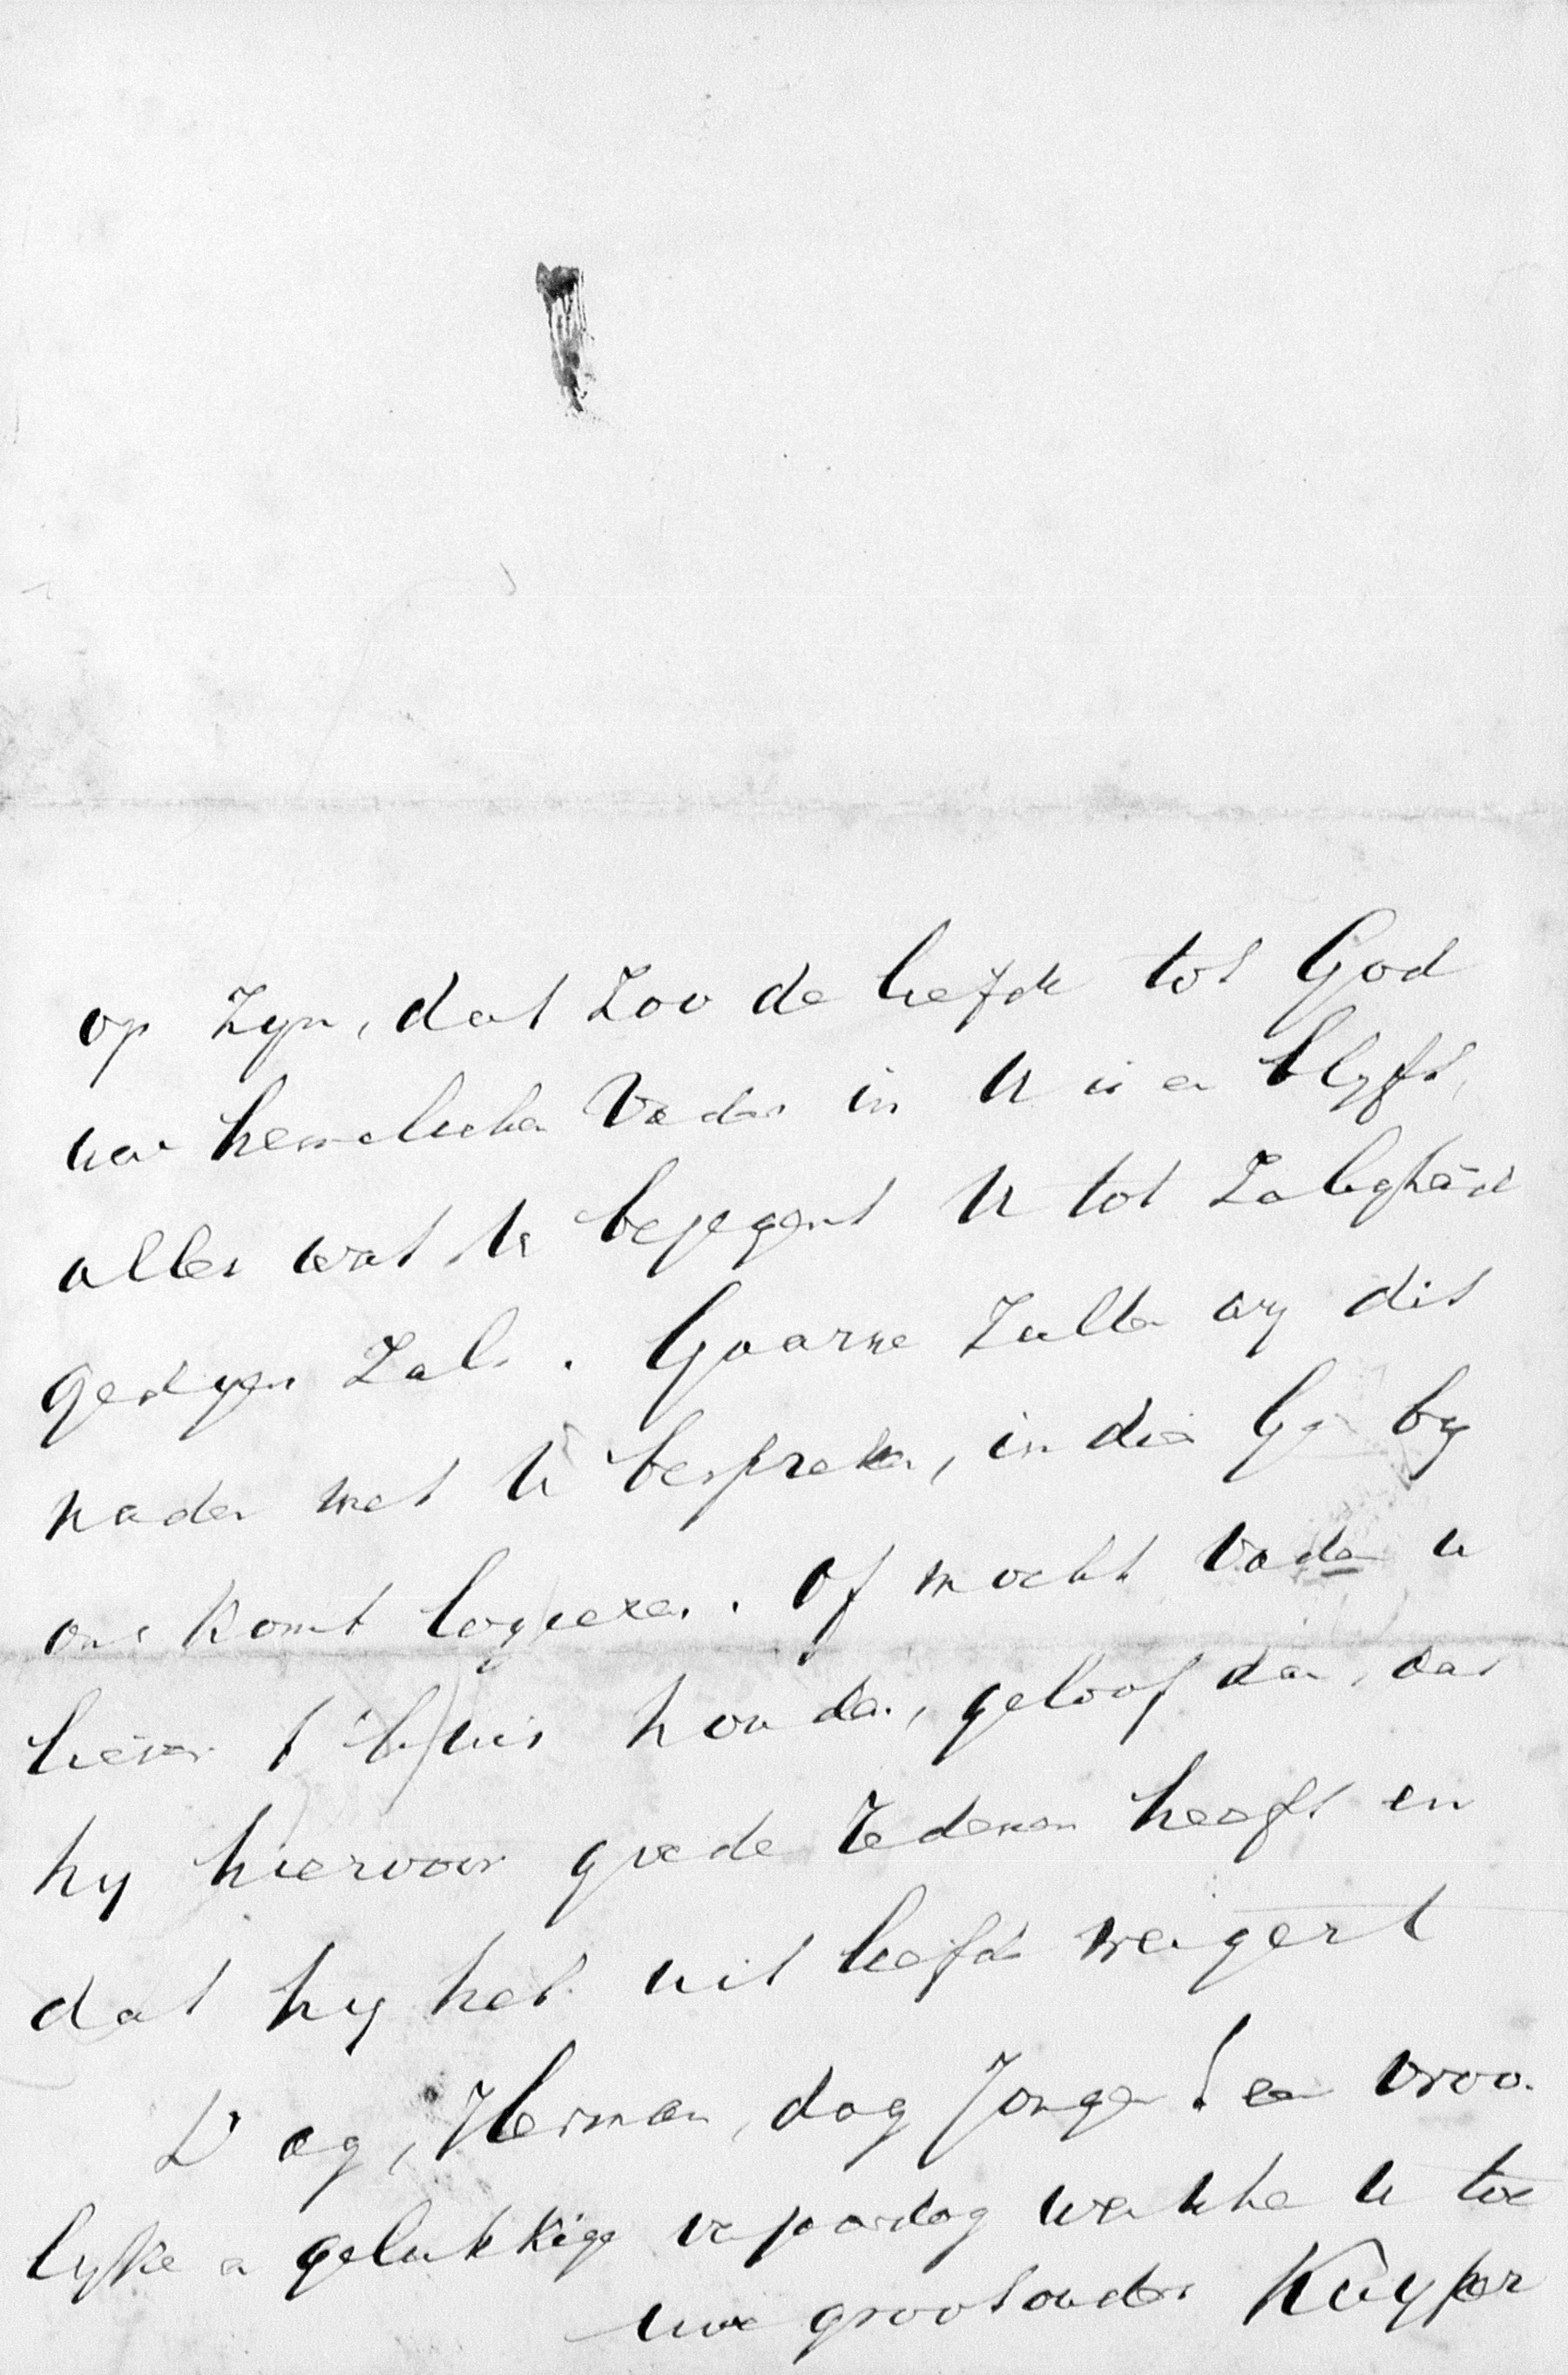 op zyn, dat zoo de liefde tot God
uw hemelschen Vader in U is en blyft,
alles wat U bejegent U tot zaligheid
gedyen zal. Gaarne zullen wy dit
nader met U bespreken, indien Gy by
ons komt logeeren. Of mocht Vader u
liever t'huis houden, geloof dan, dat
hy hiervoor goede redenen heeft en
dat hy het uit liefde weigert
Dag, Herman, dag Jongen! een vroo-
lyke en gelukkige verjaardag wenschen U toe
uwe grootouders Kuyper